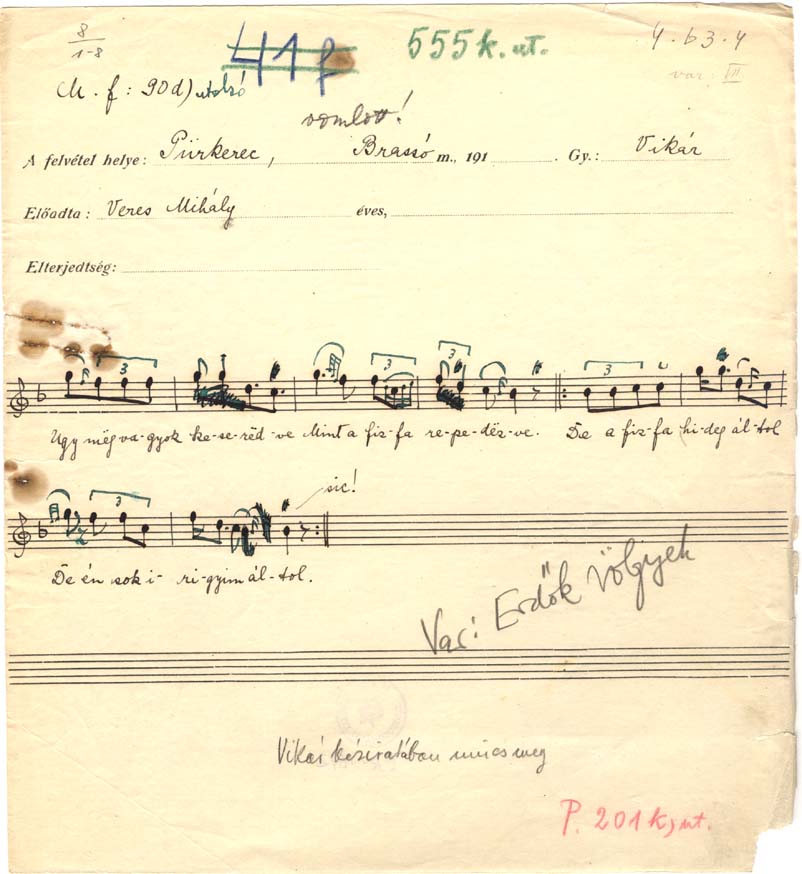 8
1-8
41f
555 k. ut.
4.63.4
var. VII
M. f: 90d) utolsó
romlott!
A felvétel helye: Pürkerec, Brassó m., 191 . Gy.: Vikár
Előadta: Veres Mihály éves,
Elterjedtség:
3 3 3 3
Ugy még va-gyok ke-se-rëd-ve Mint a fiz-fa re-pe-dëz-ve. De a fiz-fa hi-deg ál-tol
3 sic!
De én sok i- ri-gyim ál-tol.
Var: Erdők völgyek
Vikár kéziratában nincs meg
P. 201 k, ut.